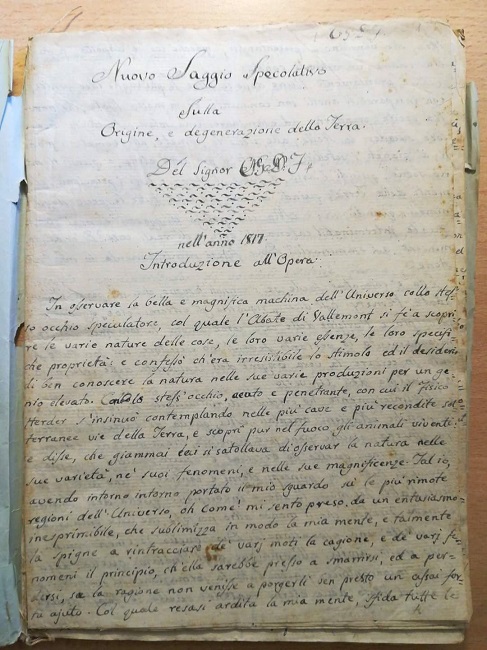 Nuovo Saggio Specolativo
Sulla
Origine, e degenerazione della Terra.
Del Signor
nell'anno 1817.
Introduzione all'Opera.
In osservare la bella e magnifica machina dell'Universo collo stes=
so occhio speculatore, col quale l'Abate di Vallemont si fè a scopri=
re le varie nature delle cose, le loro varie essenze, le loro specifi=
che proprietà: e confessò ch'era irresistibile lo stimolo ed il desiderio
di ben conoscere la natura nelle sue varie produzioni per un ge=
nio elevato. Collo stess'occhio, acuto e penetrante, con cui il fisico
Herder s'insinuò contemplando nelle più cave e più recondite sot=
terranee vie della Terra, e scoprì pur nel fuoco gli animali viventi:
e disse, che giammai si satollava di osservar la natura nelle
sue varietà, ne' suoi fenomeni, e nelle sue magnificenze. Tal io,
avendo intorno intorno portato il mio sguardo su le più rimote
regioni dell'Universo, oh come! mi sento preso da un entusiasmo
inesprimibile, che sublimizza in modo la mia mente, e talmente
la spigne a rintracciar de' varj moti la cagione, e de' varj fe=
nomeni il principio, ch'ella sarebbe presso a smarrirsi, ed a per=
dersi, se la ragione non venisse a porgerli ben presto un assai for=
te ajuto. Col quale resasi ardita la mia mente, sfida tutte le